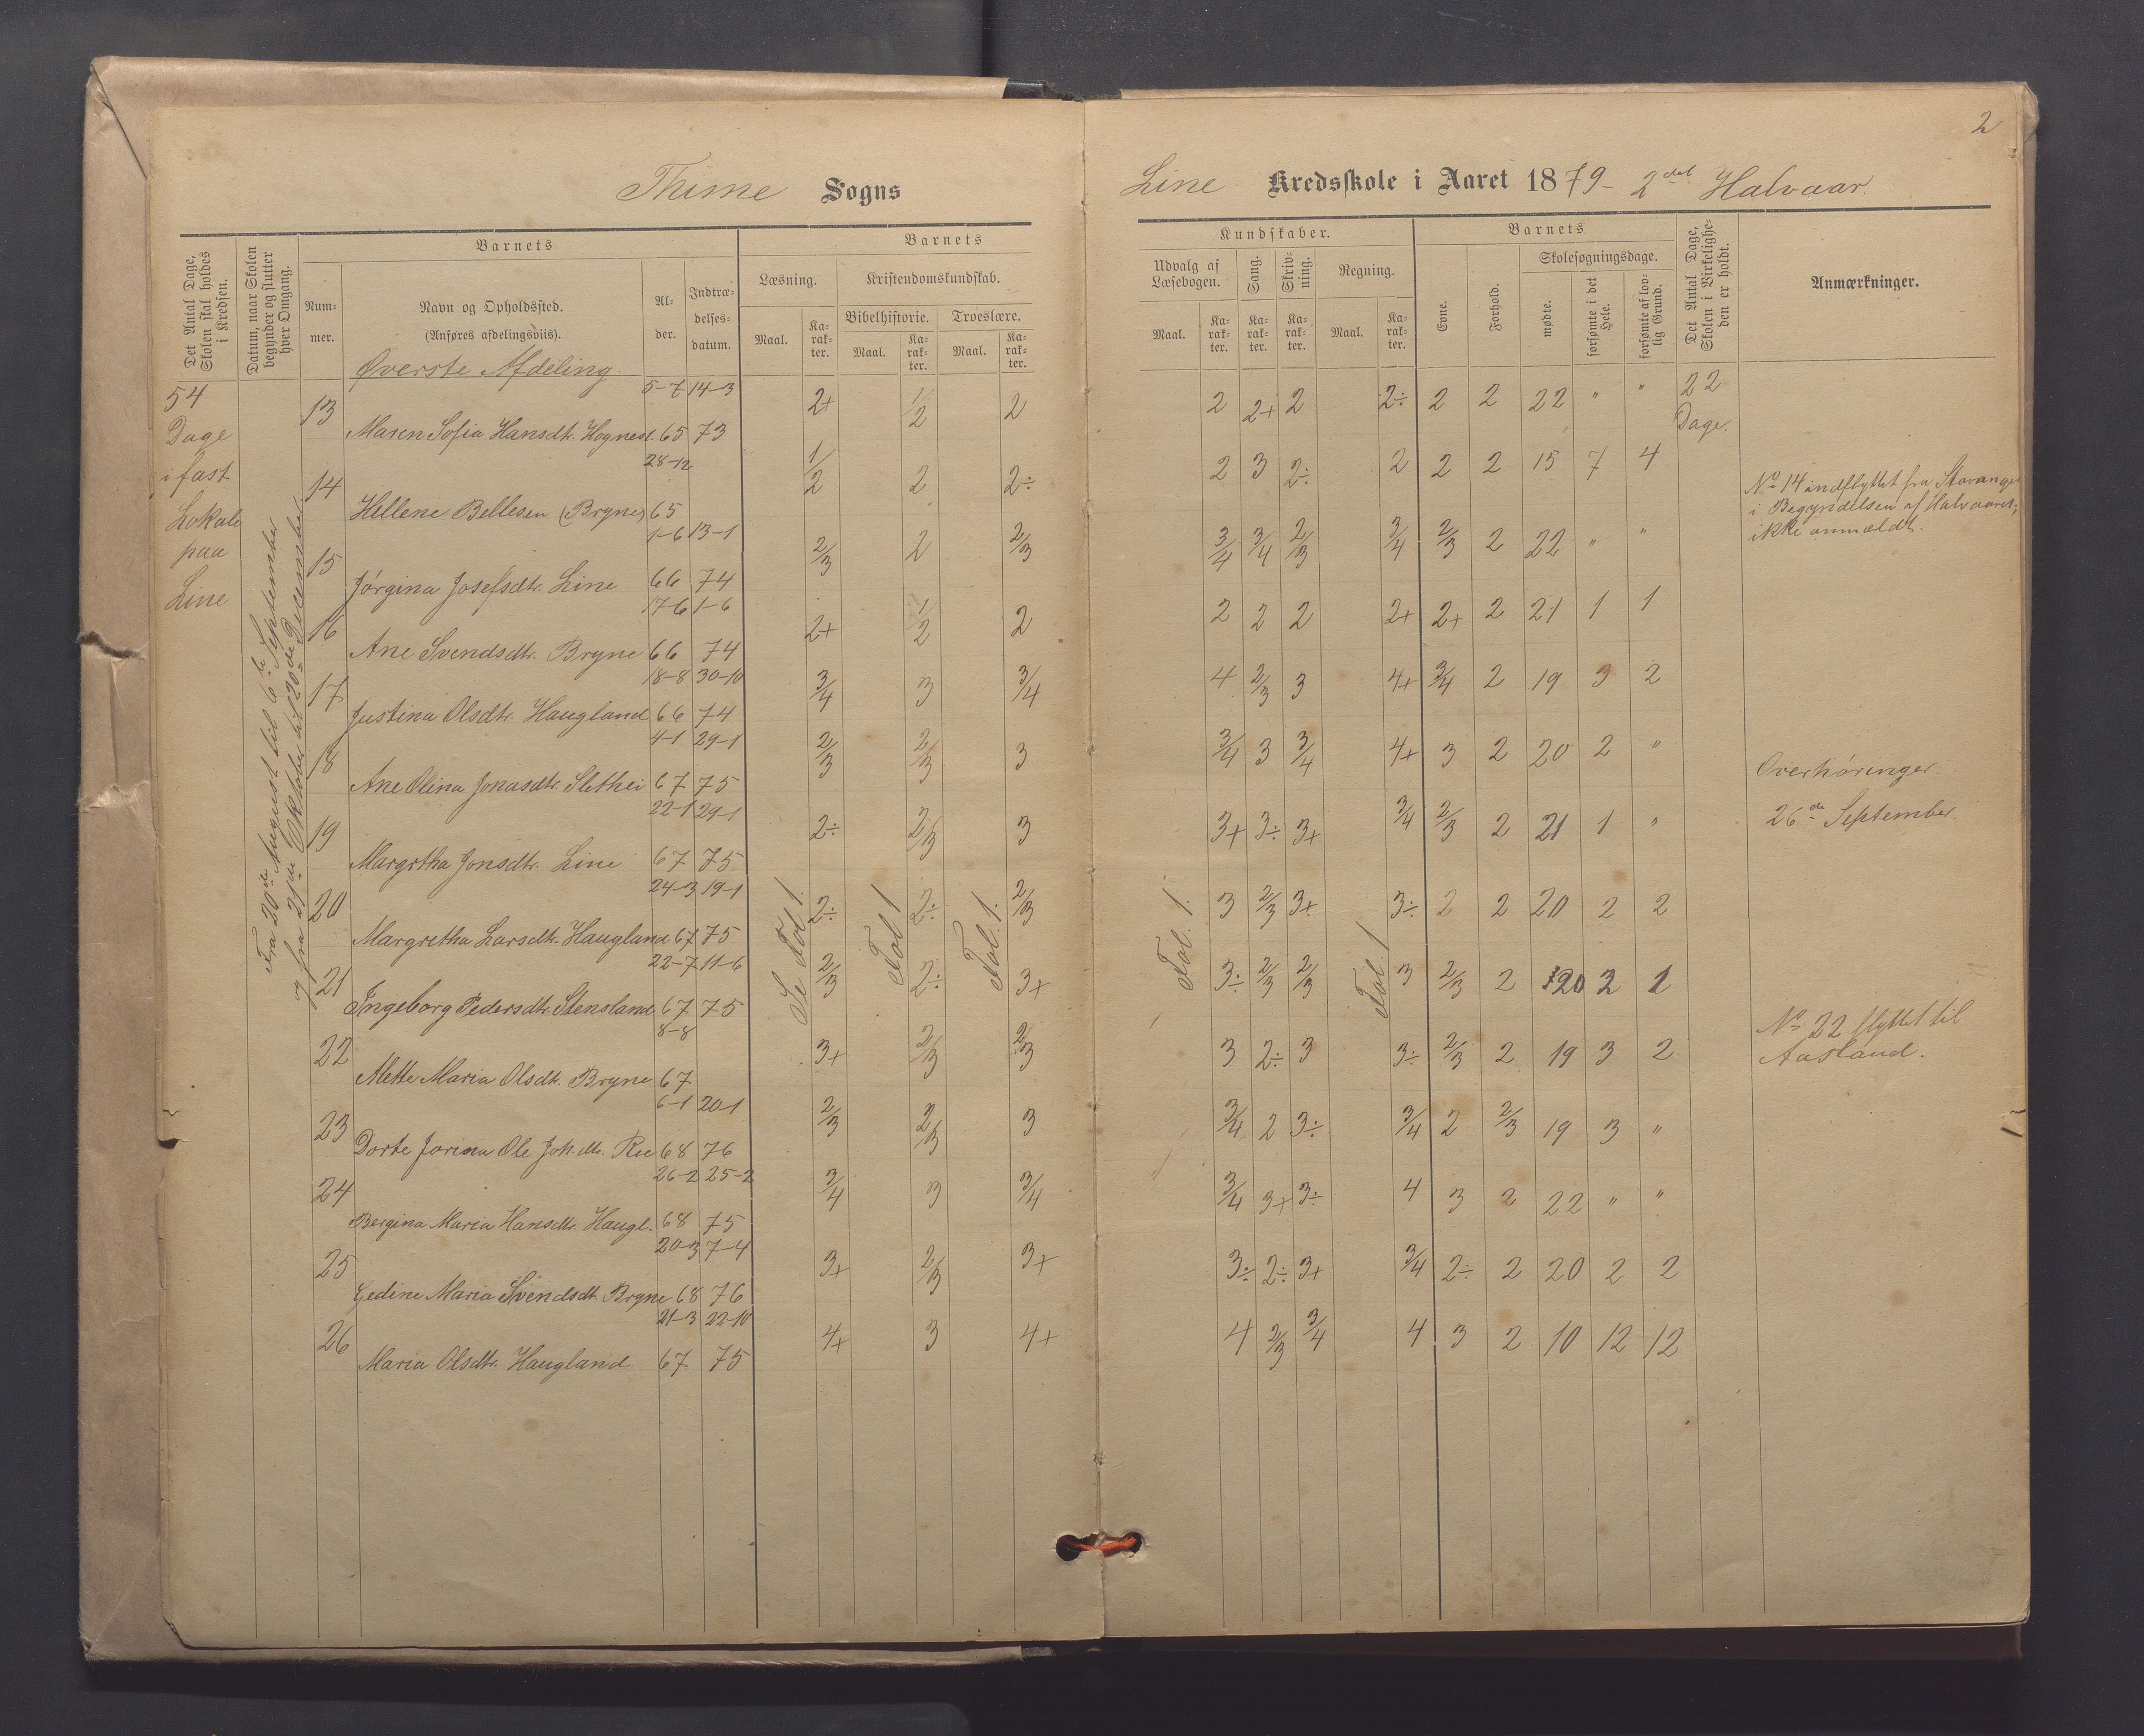 2
Thime Sogns
Line Kredsskole i Aaret 1879 - 2det Halvaar.
Det Antal Dage, Skolen skal holdes i Kredsen.
Datum, naar Skolen begynder og slutter hver Omgang.
Barnets
Nummer.
Navn og Opholdssted.
(Anføres afdelingsviis).
Alder.
Indtrædelsesdatum.
Barnets
Læsning.
Kristendomskundskab.
Bibelhistorie. Troeslære.
Maal. Karakter. Maal. Karakter. Maal. Karakter.
Kundskaber.
Udvalg af Læsebogen. Sang. Skrivning. Regning.
Maal. Karakter. Karakter. Karakter. Maal. Karakter.
Barnets
Evne. Forhold. Skolesøgningsdage.
mødte. forsømte i det Hele. forsømte af lovlig Grund.
Det Antal Dage, Skolen i Virkeligheden er holdt.
Anmærkninger.
Øverste Afdeling.
54
Dage
i fast
Lokale
paa
Line
Fra 20de August til 6te September
og fra 21de Oktober til 20de December
5-7 14-3
13 Maren Sofia Hansdtr. Hognest. 65 73 2+ 1/2 2 2 2+ 2 2÷ 2 2 22 " " 22 Dage.
28-12
14 Hellene Bellesen (Bryne) 65 1/2 2 2÷ 2 3 2÷ 2 2 2 15 7 4
1-6 13-1
15 Jørgina Josefsdtr. Line 66 74 2/3 2 2/3 3/4 3/4 2/3 3/4 2/3 2 22 " "
17-6 1-6
16 Ane Svendsdtr. Bryne 66 74 2+ 1/2 2 2 2 2 2+ 2+ 2 21 1 1
18-8 30-10
17 Justina Olsdtr. Haugland 66 74 3/4 3 3/4 4 2/3 3 4+ 3/4 2 19 3 2
4-1 29-1
18 Ane Olina Jonasdtr. Slethei 67 75 2/3 2/3 3 3/4 3 3/4 4+ 3 2 20 2 "
22-1 29-1
19 Margrtha Jonsdtr. Line 67 75 2÷ 2/3 3 3+ 3÷ 3+ 3/4 2/3 2 21 1 "
24-3 19-1
20 Margretha Larsdtr. Haugland 67 75 2÷ 2÷ 2/3 3 2/3 3+ 3÷ 2 2 20 2 2
22-7 11-6
21 Ingeborg Pedersdtr. Stensland 67 75 2/3 2÷ 3+ 3÷ 2/3 2/3 3 2/3 2 20 2 1
8-8
22 Mette Maria Olsdtr. Bryne 67 3+ 2/3 2/3 3 2÷ 3 3÷ 2/3 2 19 3 2
6-1 20-1
23 Dorte Jorina Ole Joh.dtr. Ree 68 76 2/3 2/3 3 3/4 2 3÷ 3/4 2 2/3 19 3 "
26-2 25-2
24 Bergina Maria Hansdtr. Haugl. 68 75 3/4 3 3/4 3/4 3+ 3÷ 4 3 2 22 " "
20-3 7-4
25 Gedine Maria Svendsdtr. Bryne 68 76 3+ 2/3 3+ 3÷ 2÷ 3+ 3/4 2÷ 2 20 2 2
21-3 22-10
26 Maria Olsdtr. Haugland 67 75 4+ 3 4+ 4 2/3 3/4 4 3 2 10 12 12
Se Fol 1.
Fol 1
Fol. 1.
Fol. 1.
Fol. 1
No 14 indflyttet fra Stavanger
i Begyndelsen af Halvaaret;
ikke anmeldt.
Overhøringer.
26de September.
No 22 flyttet til
Aasland.